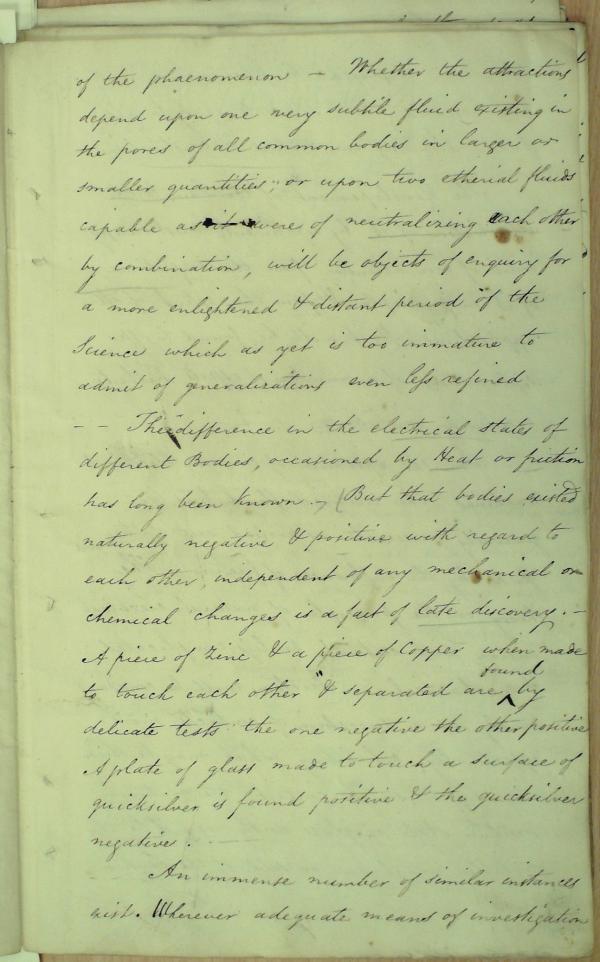 of the phaenomenon — Whether the attractions
depend upon one very subtile fluid existing in
the pores of all common bodies in larger or
smaller quantities; or upon two etherial fluids
capable as it were of neutralizing each other
by combination, will be objects of enquiry for
a more enlightened & distant period of the
Science which as yet is too immature to
admit of generalizations even less refined
— — The difference in the electrical states of
different Bodies, occasioned by Heat or friction
has long been known. — (But that bodies existed
naturally negative & positive with regard to
each other, independent of any mechanical or
chemical changes is a fact of late discovery. —
A piece of Zinc & a piece of Copper when made
to touch each other & separated are found by
delicate tests the one negative the other positive
A plate of glass made to touch a surface of
quicksilver is found positive & the quicksilver
negative.
An immense number of similar instances
exist. Wherever adequate means of investigation